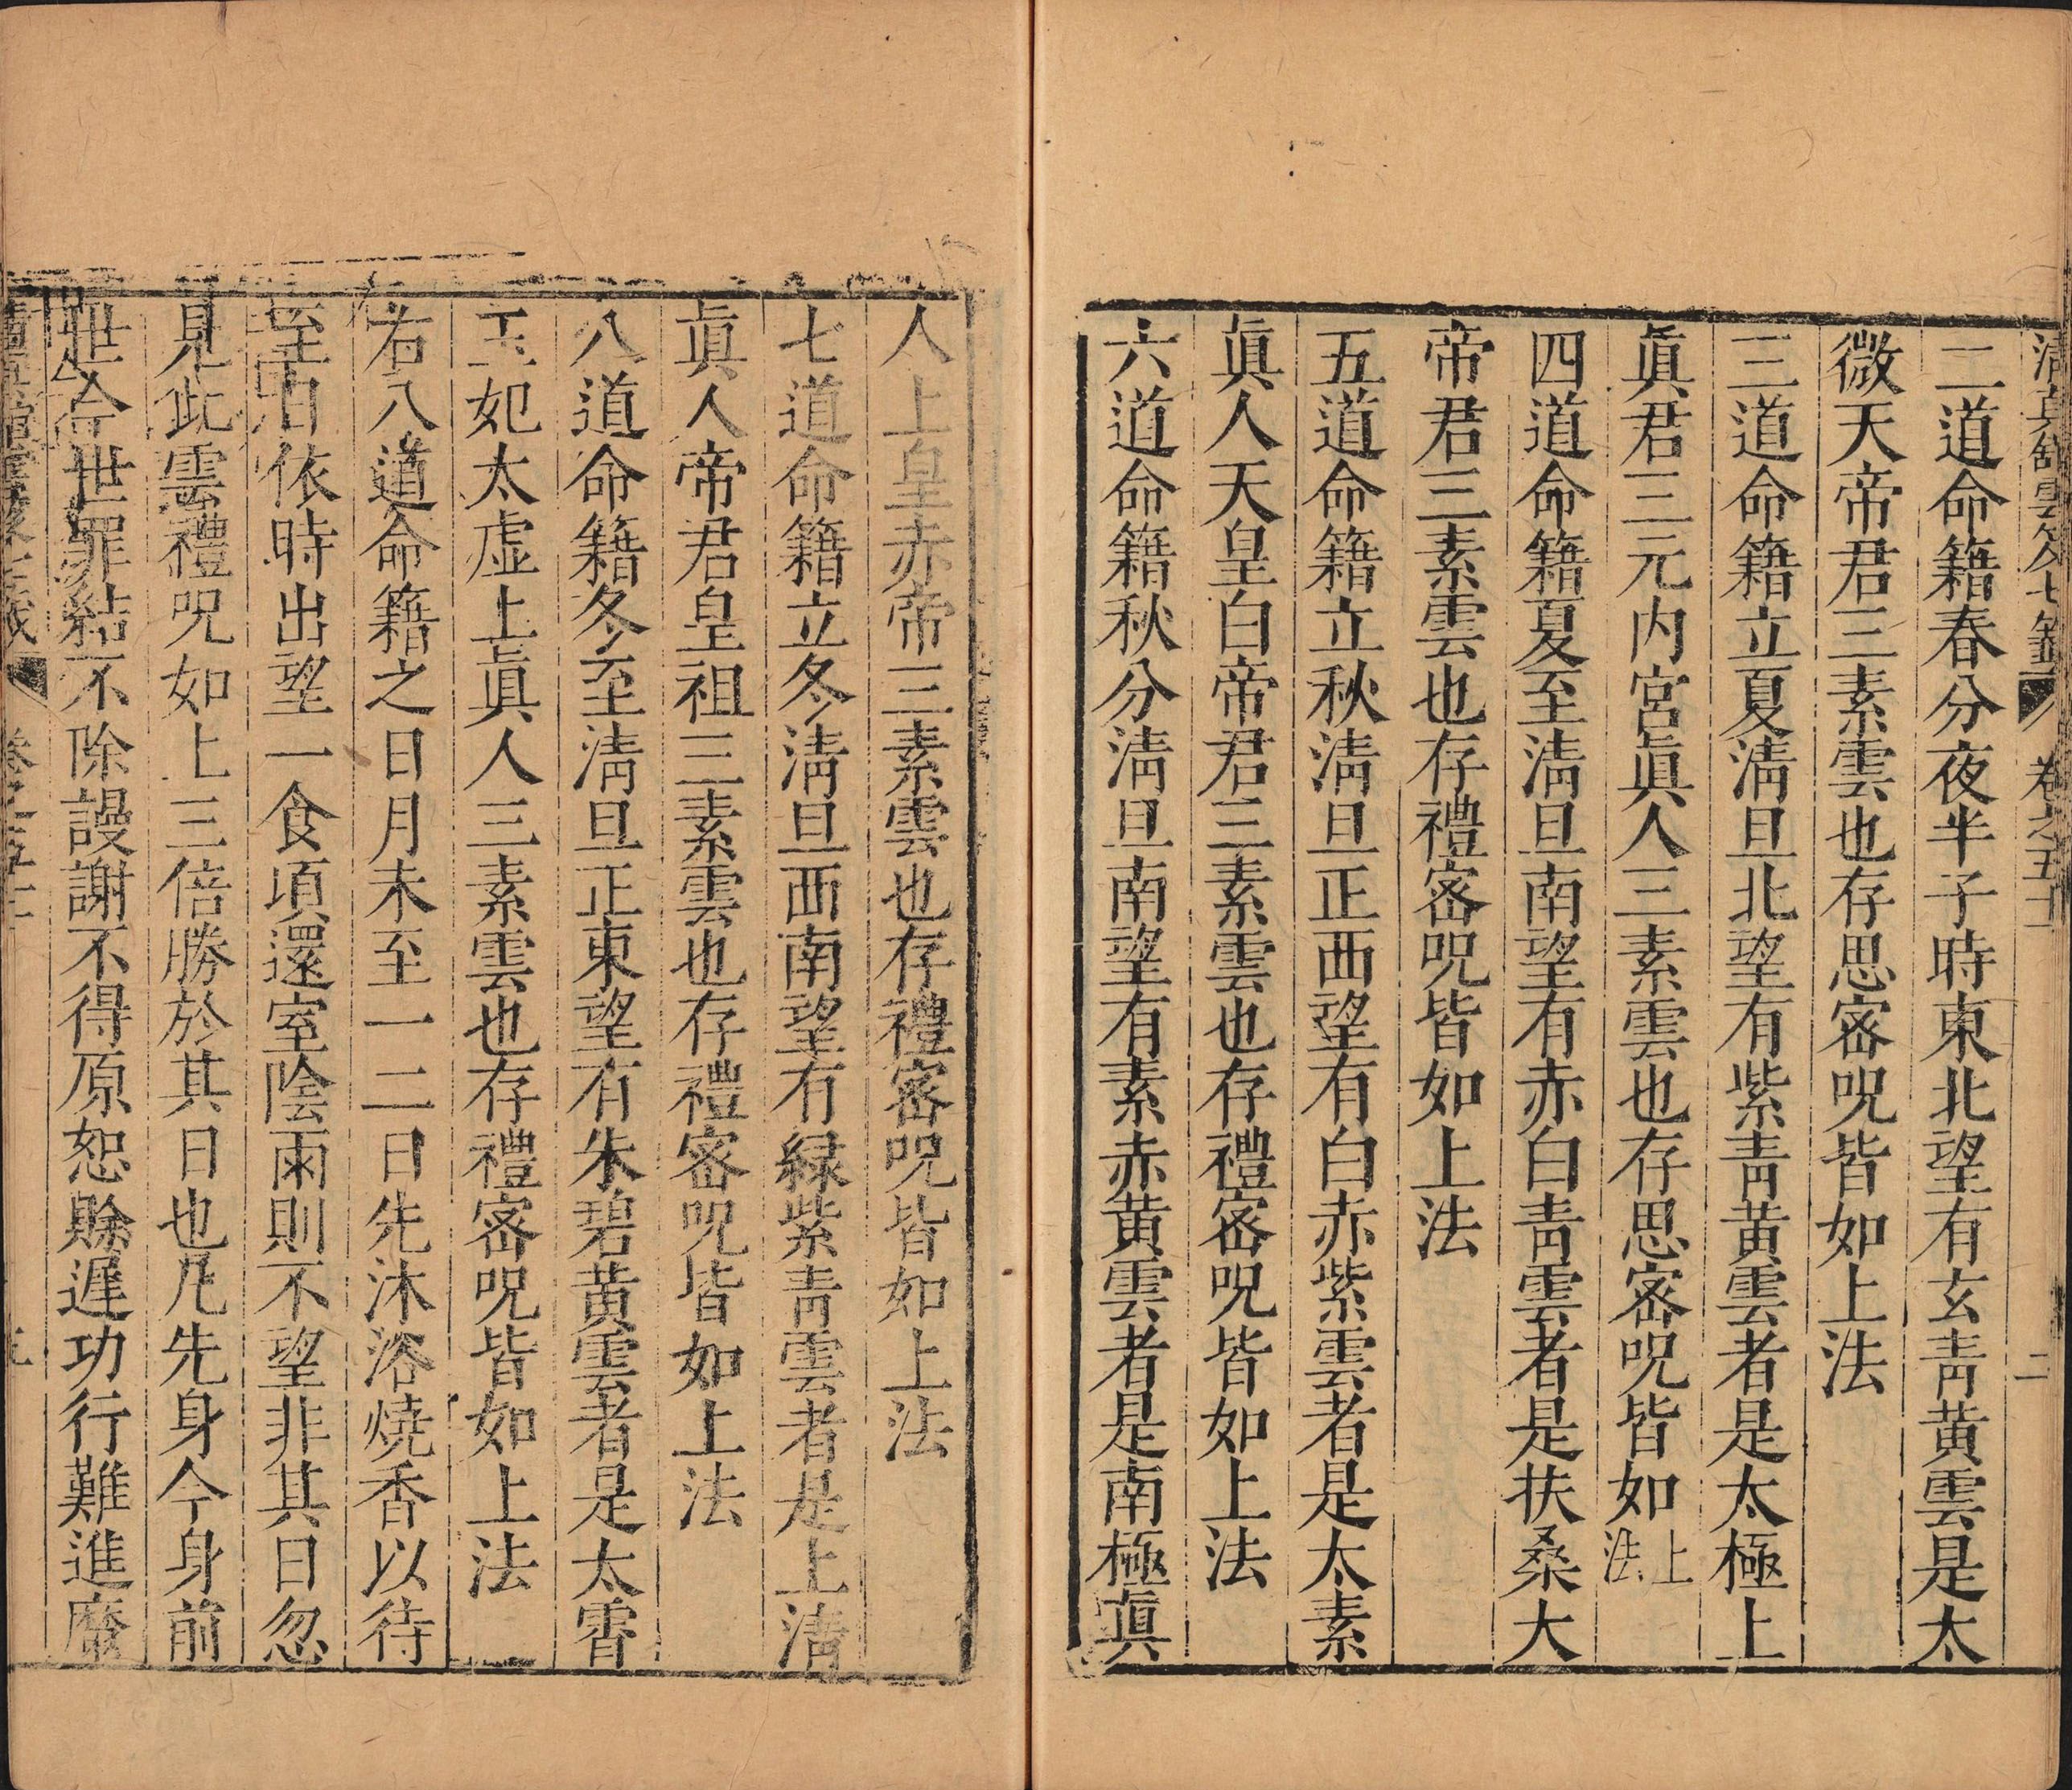 清真舘雲笈七籤 卷之五十一 二
二道命籍春分夜半子時東北望有玄靑黄雲是太
微天帝君三素雲也存思宻呪皆如上法
三道命籍立夏淸旦北望有紫靑黄雲者是太極上
眞君三元内宮眞人三素雲也存思宻呪皆如上法
四道命籍夏至淸旦南望有赤白靑雲者是扶桑大
帝君三素雲也存禮宻呪皆如上法
五道命籍立秋淸旦正西望有白赤紫雲者是太素
眞人天皇白帝君三素雲也存禮宻呪皆如上法
六道命籍秋分淸旦南望有素赤黄雲者是南極眞
人上皇赤帝三素雲也存禮宻呪皆如上法
七道命籍立冬淸旦西南望有緑紫靑雲者是上淸
眞人帝君皇祖三素雲也存禮宻呪皆如上法
八道命籍冬至淸旦正東望有朱碧黄雲者是太霄
玉妃太虛上眞人三素雲也存禮宻呪皆如上法
右八道命籍之日月未至一二日先沐浴燒香以待
至日依時出望一食頃還室陰雨則不望非其日忽
見此雲禮呪如上三倍勝於其日也凡先身今身前
世今世罪結不除謾謝不得原恕賒遲功行難進廢
卷之五十一